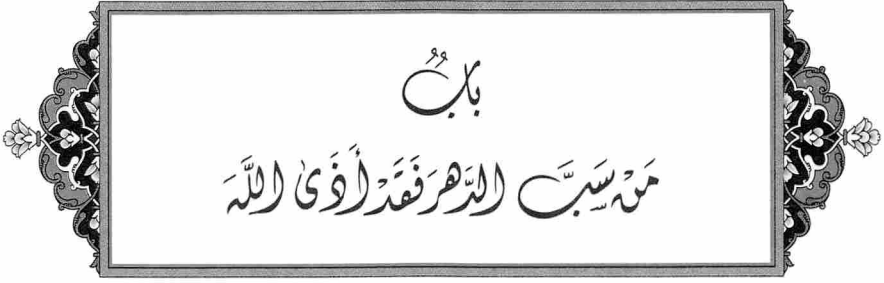 بَابٌ
مَنْ سَبَّ الدَّهرَ فَقَدْ أَذَىٰ اللَّهَ